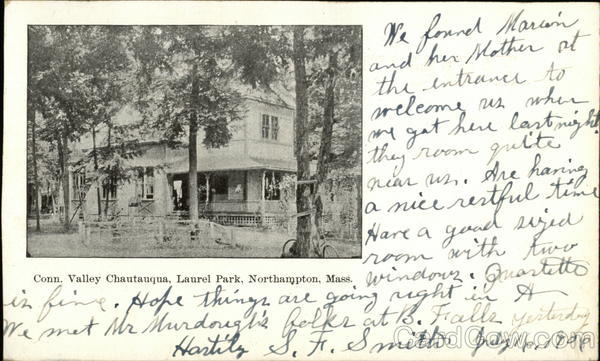 We found Marion
and her Mother at
the entrance to
welcome us when
we got here last night
they room quite
near us. Are having
a nice restful time
Have a good sized
room with two
windows. Quartette
Conn. Valley Chautauqua, Laurel Park, Northampton, Mass.
is fine. Hope things are going right in A
We met Mr Murdough's folks at B. Falls yesterday
Hastily S. F. Smith July
CardCow.com